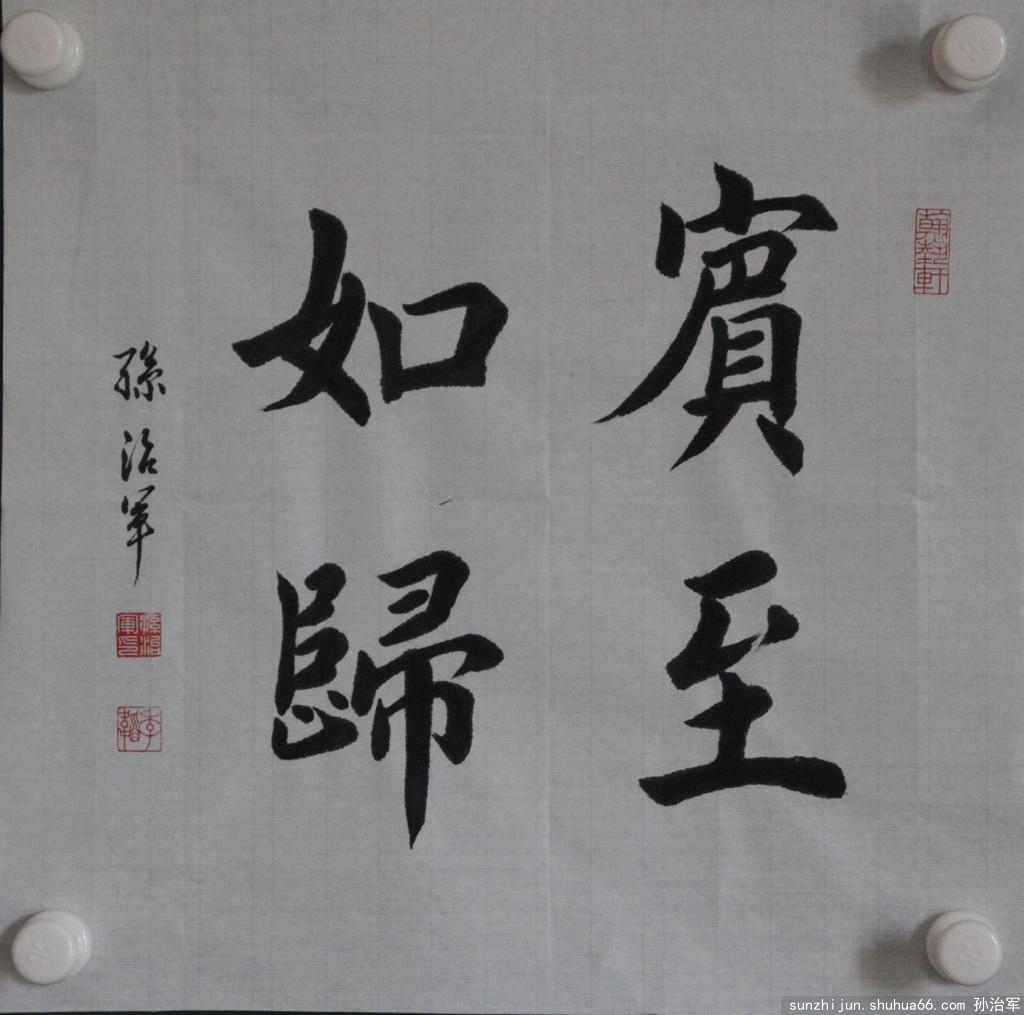 賓至
如歸
孫治军
翰墊軒
孫治軍印
sunzhijun.shuhua66.com 孙治军